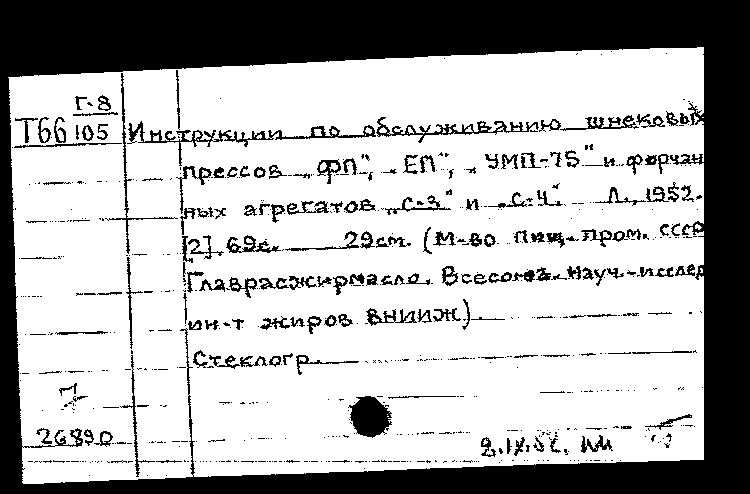 Г-8
Т66 105 Инструкции по обслуживанию шнековых
прессов „ФП", „ЕП", „УМП-75" и форчан
ных агрегатов „С-3" и „С-4". Л., 1952.
[2], 69с. 29см. (М-во пищ. пром. СССР
Главрасжирмасло. Всесоюз. науч.-исслед
ин-т жиров ВНИИЖ).
Стеклогр.
7
26890
2.IX.52.